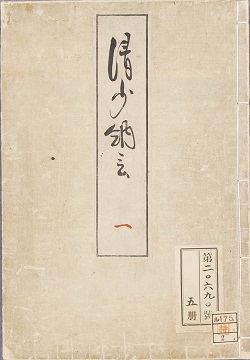 清少納言
一
第二〇六九〇號
五册
ル175